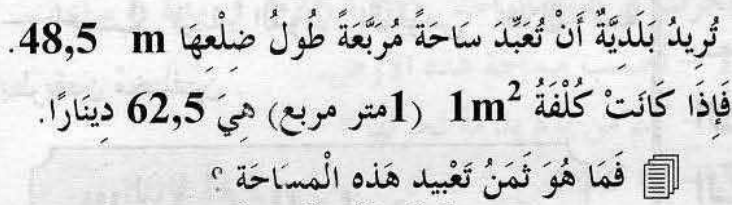 تُرِيدُ بَلَدِيَّةٌ أَنْ تُعَبِّدَ سَاحَةً مُرَبَّعَةً طُولُ ضِلْعِهَا 48,5 m.
فَإِذَا كَانَتْ كُلْفَةُ 1m² (1متر مربع) هِيَ 62,5 دِينَارًا.
فَمَا هُوَ ثَمَنُ تَعْبِيد هَذه الْمسَاحَة ؟